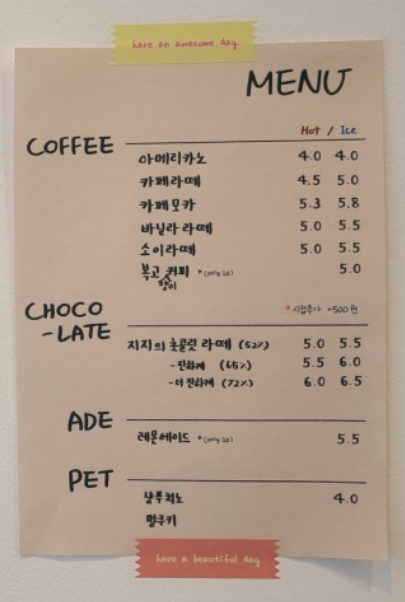 have an awesome day
MENU
Hot / Ice
COFFEE
아메리카노 4.0 4.0
카페라떼 4.5 5.0
카페모카 5.3 5.8
바닐라 라떼 5.0 5.5
소이라떼 5.0 5.5
복고 커피 *(only ice) 5.0
CHOCO
-LATE
*시럽추가 +500원
지지의 초콜릿 라떼 (52%) 5.0 5.5
-진하게 (65%) 5.5 6.0
-더 진하게 (72%) 6.0 6.5
ADE
레몬에이드 *(only ice) 5.5
PET
냥푸치노 4.0
멍쿠키
have a beautiful day